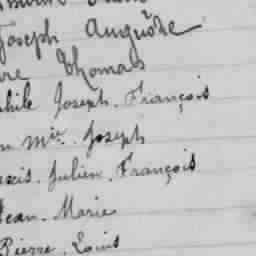 Joseph Auguste
re Thomas
phile Joseph. François
n Mie. Joseph
exis. Julien. François
Jean. Marie
Pierre. Louis